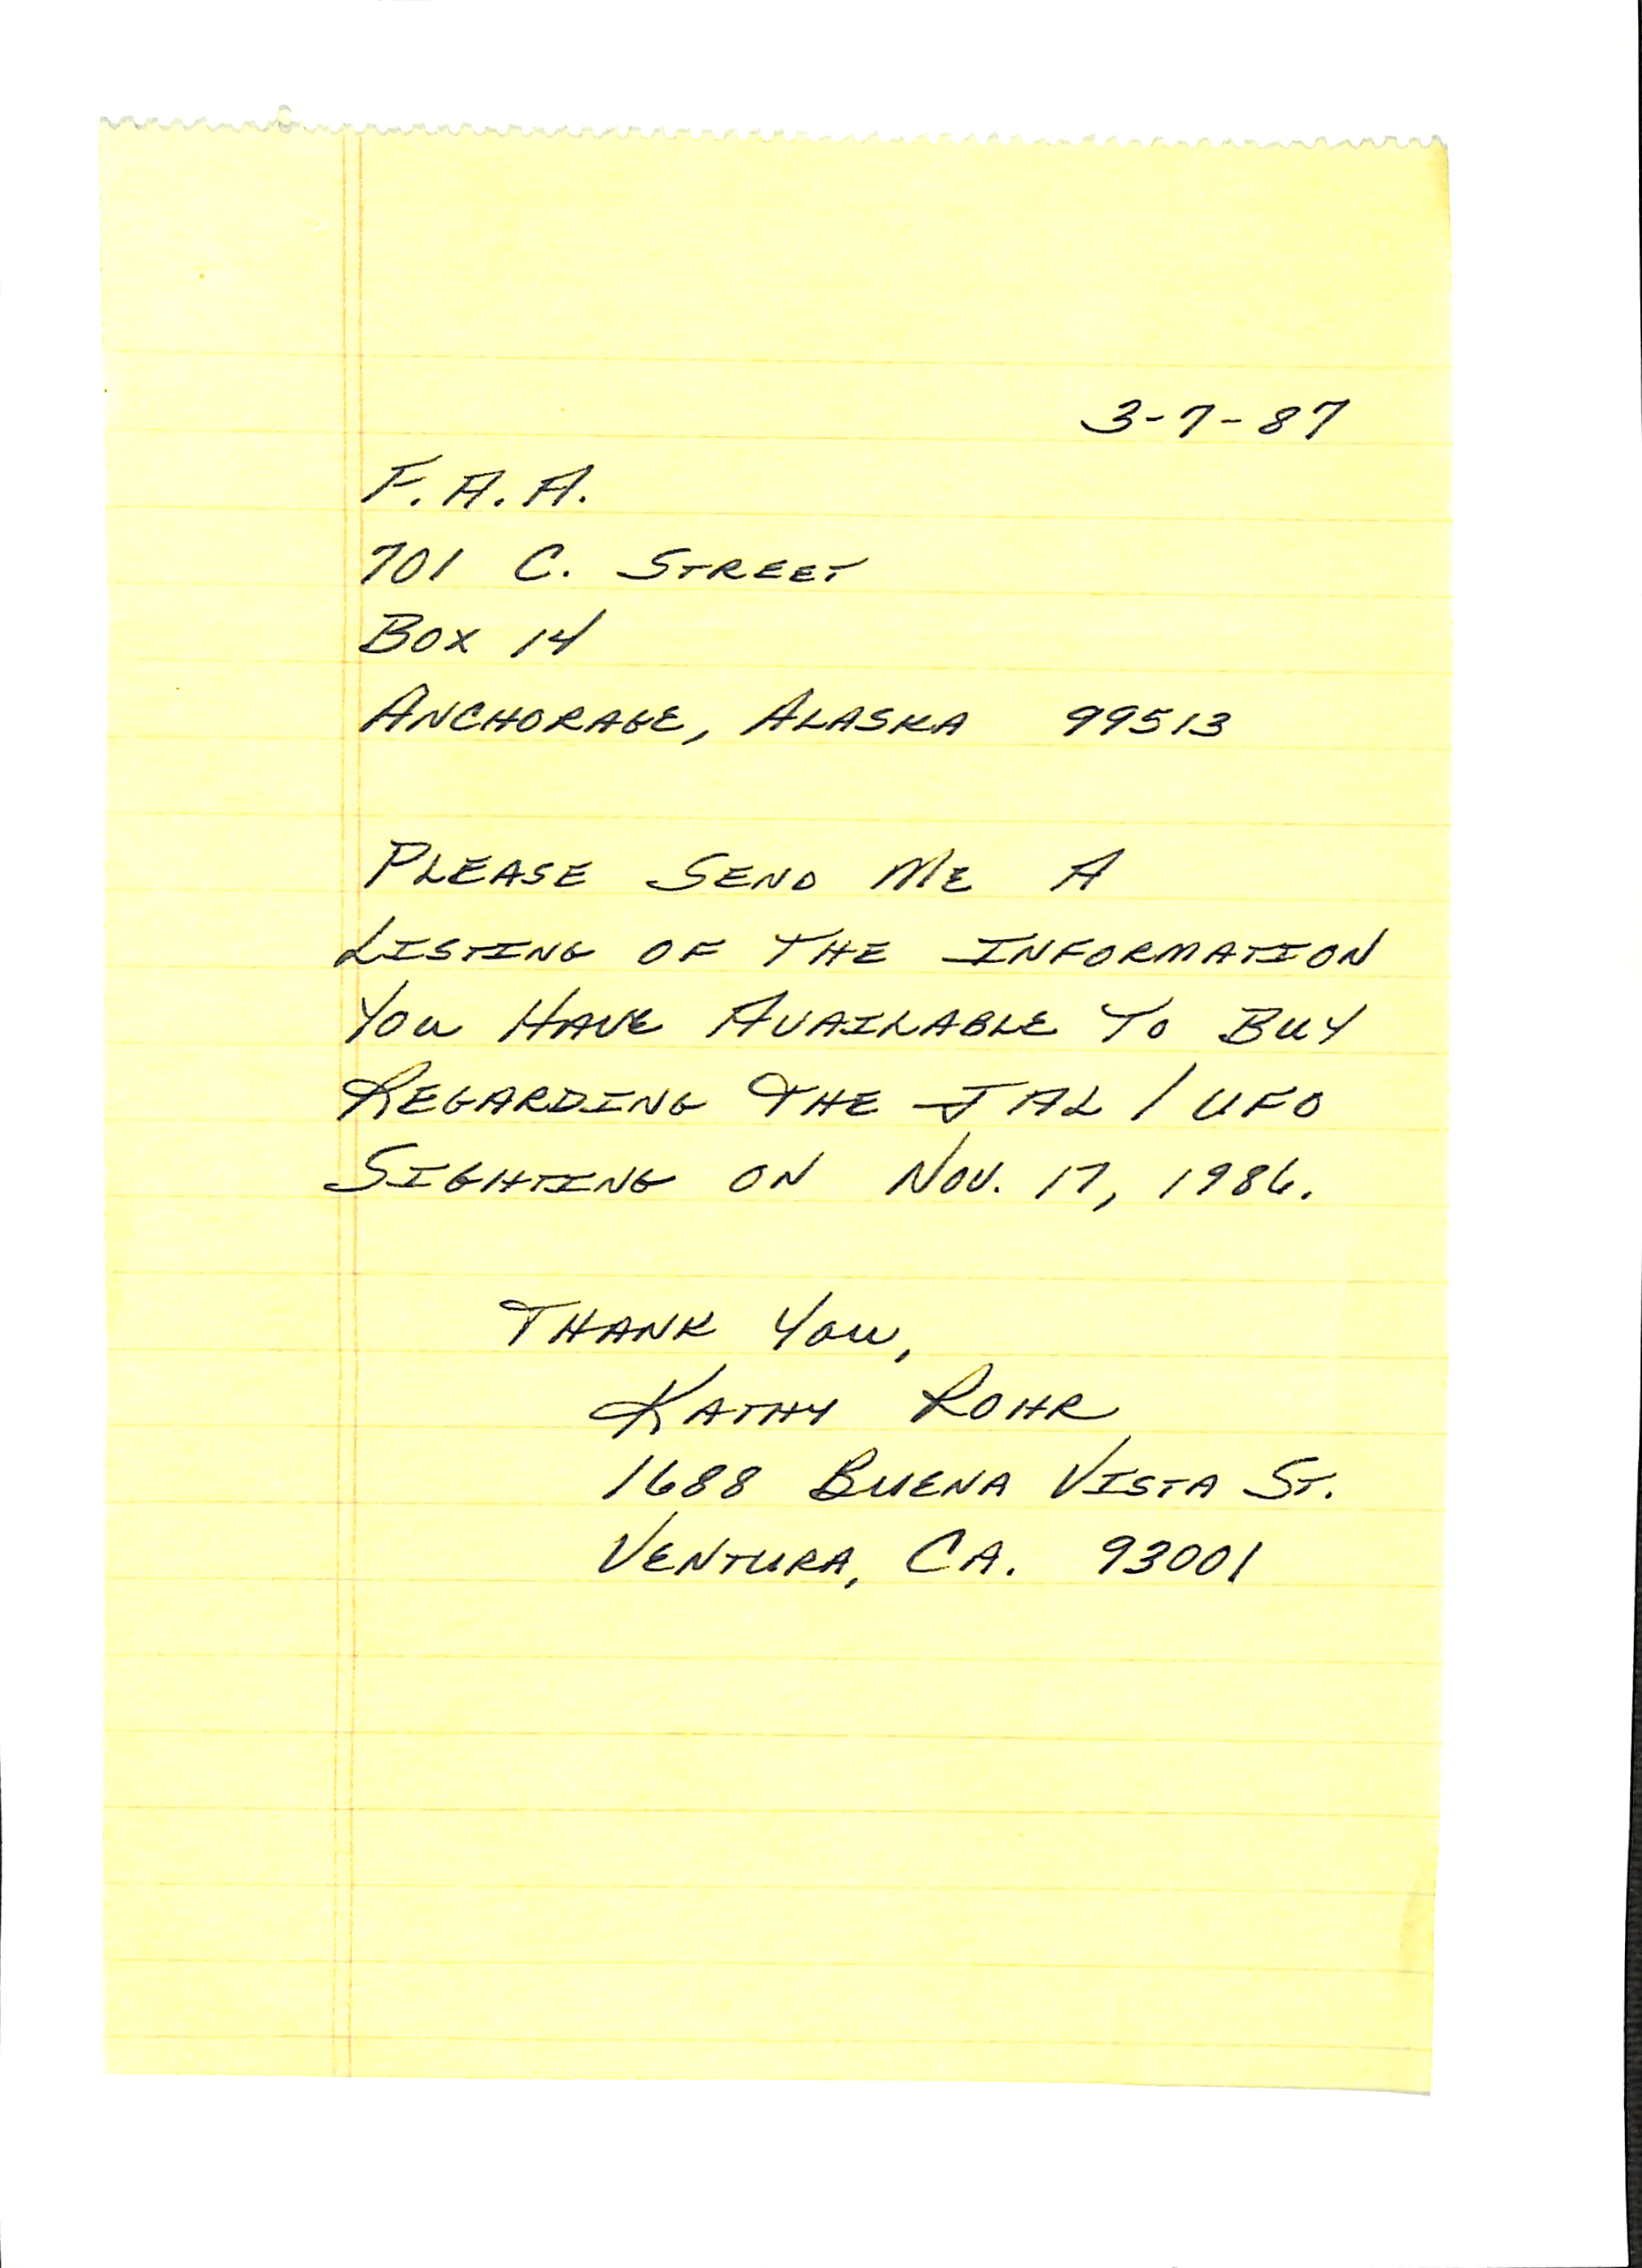 3-7-87
F.A.A.
701 C. STREET
BOX 14
ANCHORAGE, ALASKA 99513
PLEASE SEND ME A
LISTING OF THE INFORMATION
YOU HAVE AVAILABLE TO BUY
REGARDING THE JAL / UFO
SIGHTING ON NOV. 17, 1986.
THANK YOU,
KATHY ROHR
1688 BUENA VISTA ST.
VENTURA, CA. 93001